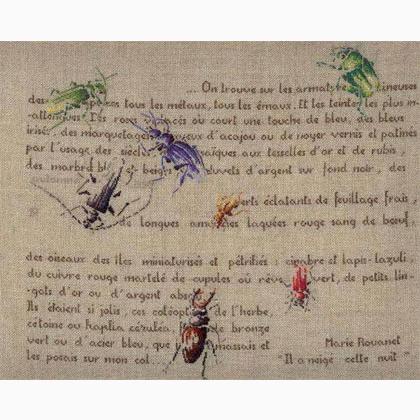 ... On trouve sur les armatures
des tous les métaux, tous les émaux. Et les teintes les plus in-
-attendues. Des roux où court une touche de bleu, des bleus
irisés, des marquetages d'acajou ou de noyer vernis et patinés
par l'usage des siècles, aux tesselles d'or et de rubis,
des marbrés beiges d'argent sur fond noir, des
verts éclatants de feuillage frais,
de longues amandes laquées rouge sang de bœuf,
des oiseaux des îles miniaturisés et pétrifiés : cinabre et lapis-lazuli,
du cuivre rouge martelé de cupules où vert, de petits lin-
-gots d'or ou d'argent
Ils étaient si jolis, ces de l'herbe,
cétoine ou hoplia cérulea, de bronze
vert ou d'acier bleu, que massais et
les posais sur mon col...
Marie Rouanet
"Il a neigé cette nuit"